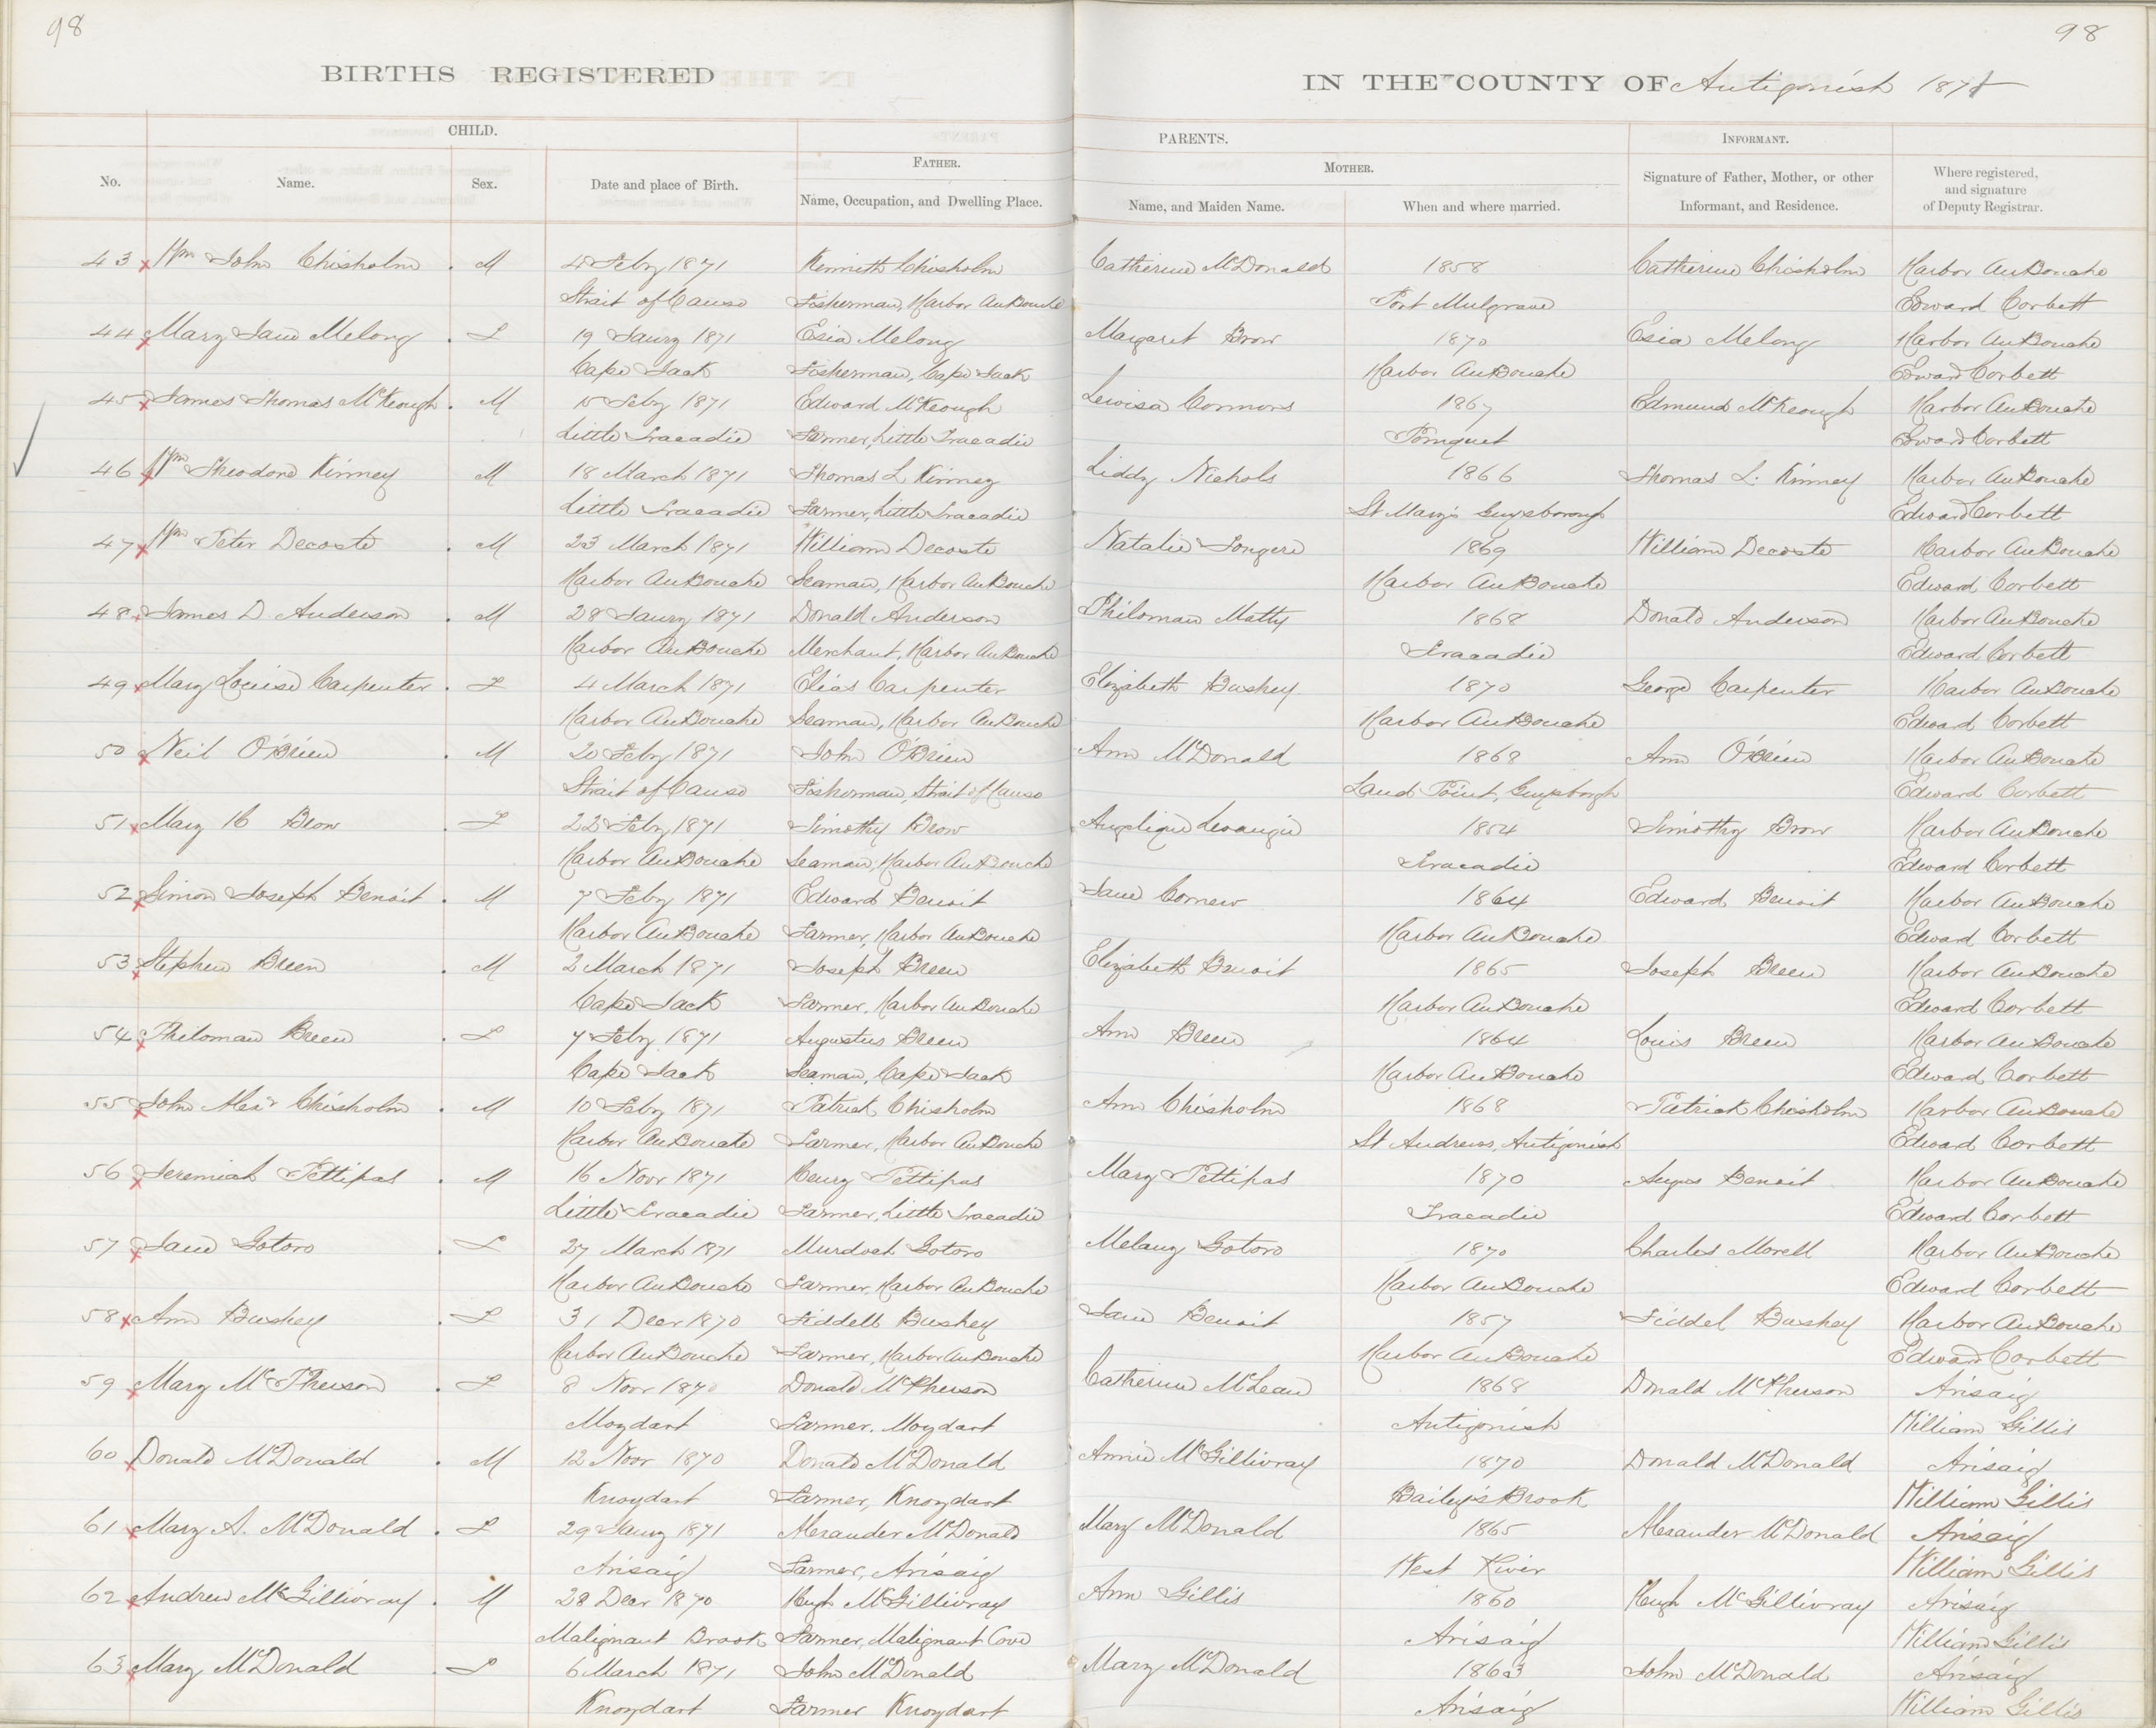 98
98
BIRTHS REGISTERED
IN THE COUNTY OF Antigonish 1871
CHILD.
PARENTS.
INFORMANT.
No.
Name.
Sex.
Date and place of Birth.
FATHER.
Name, Occupation, and Dwelling Place.
MOTHER.
Name, and Maiden Name.
When and where married.
Signature of Father, Mother, or other
Informant, and Residence.
Where registered,
and signature
of Deputy Registrar.
43 Wm John Chisholm M 4 Feby 1871 Kenneth Chisholm Catherine McDonald 1858 Catherine Chisholm Harbor AuBouche
Strait of Canso Fisherman, Harbor AuBouche Port Mulgrave Edward Corbett
44 Mary Jane Melong F 19 Jany 1871 Esia Melong Margaret Brow 1870 Esia Melong Harbor AuBouche
Cape Jack Fisherman, Cape Jack Harbor AuBouche Edward Corbett
45 James Thomas McKeough M 15 Feby 1871 Edward McKeough Lewisa Connors 1867 Edmund McKeough Harbor AuBouche
Little Tracadie Farmer, Little Tracadie Pomquet Edward Corbett
46 Wm Theodore Kinney M 18 March 1871 Thomas L Kinney Liddy Nichols 1866 Thomas L. Kinney Harbor AuBouche
Little Tracadie Farmer, Little Tracadie St Mary's Guysborough Edward Corbett
47 Wm Peter Decoste M 23 March 1871 William Decoste Natalie Fongere 1869 William Decoste Harbor AuBouche
Harbor AuBouche Seaman, Harbor AuBouche Harbor AuBouche Edward Corbett
48 James D. Anderson M 28 Jany 1871 Donald Anderson Philoman Matty 1868 Donald Anderson Harbor AuBouche
Harbor AuBouche Merchant, Harbor AuBouche Tracadie Edward Corbett
49 Mary Louise Carpenter F 4 March 1871 Elias Carpenter Elizabeth Bushey 1870 George Carpenter Harbor AuBouche
Harbor AuBouche Seaman, Harbor AuBouche Harbor AuBouche Edward Corbett
50 Neil O'Brien M 20 Feby 1871 John O'Brien Ann McDonald 1868 Ann O'Brien Harbor AuBouche
Strait of Canso Fisherman, Strait of Canso Sand Point, Guysborogh Edward Corbett
51 Mary Brow F 22 Feby 1871 Timothy Brow Angelique Levangie 1854 Timothy Brow Harbor AuBouche
Harbor AuBouche Seaman, Harbor AuBouche Tracadie Edward Corbett
52 Simon Joseph Benoit M 7 Feby 1871 Edward Benoit Jane Cornew 1864 Edward Benoit Harbor AuBouche
Harbor AuBouche Farmer, Harbor AuBouche Harbor AuBouche Edward Corbett
53 Stephen Breen M 2 March 1871 Joseph Breen Elizabeth Benoit 1865 Joseph Breen Harbor AuBouche
Cape Jack Farmer, Harbor AuBouche Harbor AuBouche Edward Corbett
54 Philoman Breen F 7 Feby 1871 Augustus Breen Ann Breen 1864 Louis Breen Harbor AuBouche
Cape Jack Seaman, Cape Jack Harbor AuBouche Edward Corbett
55 John Alexr Chisholm M 10 Feby 1871 Patrick Chisholm Ann Chisholm 1868 Patrick Chisholm Harbor AuBouche
Harbor AuBouche Farmer, Harbor AuBouche St Andrews, Antigonish Edward Corbett
56 Jeremiah Pettipas M 16 Novr 1871 Henry Pettipas Mary Pettipas 1870 Angus Benoit Harbor AuBouche
Little Tracadie Farmer, Little Tracadie Tracadie Edward Corbett
57 Jane Gotoro F 27 March 1871 Murdoch Gotoro Melany Gotoro 1870 Charles Morell Harbor AuBouche
Harbor AuBouche Farmer, Harbor AuBouche Harbor AuBouche Edward Corbett
58 Ann Bushey F 31 Decr 1870 Fiddell Bushey Jane Benoit 1857 Fiddel Bushey Harbor AuBouche
Harbor AuBouche Farmer, Harbor AuBouche Harbor AuBouche Edward Corbett
59 Mary McPherson F 8 Novr 1870 Donald McPherson Catherine McLean 1868 Donald McPherson Arisaig
Moydart Farmer, Moydart Antigonish William Gillis
60 Donald McDonald M 12 Novr 1870 Donald McDonald Annie McGillivray 1870 Donald McDonald Arisaig
Knoydart Farmer, Knoydart Bailey's Brook William Gillis
61 Mary A. McDonald F 29 Jany 1871 Alexander McDonald Mary McDonald 1865 Alexander McDonald Arisaig
Arisaig Farmer, Arisaig West River William Gillis
62 Andrew McGillivray M 28 Decr 1870 Hugh McGillivray Ann Gillis 1860 Hugh McGillivray Arisaig
Malignant Brook Farmer, Malignant Cove Arisaig William Gillis
63 Mary McDonald F 6 March 1871 John McDonald Mary McDonald 1863 John McDonald Arisaig
Knoydart Farmer Knoydart Arisaig William Gillis